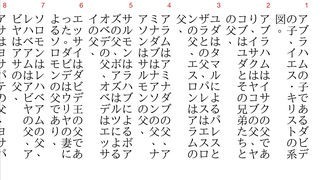 1
アブラハムの子であるダビデ
の子、イエス・キリストの系
図。
2
アブラハムはイサクの父であ
り、イサクはヤコブの父、ヤ
コブはユダとその兄弟たちと
の父、
3
ユダはタマルによるパレスと
ザラとの父、パレスはエスロ
ンの父、エスロンはアラムの
父、
4
アラムはアミナダブの父、ア
ミナダブはナアソンの父、ナ
アソンはサルモンの父、
5
サルモンはラハブによるボア
ズの父、ボアズはルツによる
オベデの父、オベデはエッサ
イの父、
6
エッサイはダビデ王の父であ
った。ダビデはウリヤの妻に
よるソロモンの父であり、
7
ソロモンはレハベアムの父、
レハベアムはアビヤの父、ア
ビヤはアサの父、
8
アサはヨサパテの父、ヨサパ